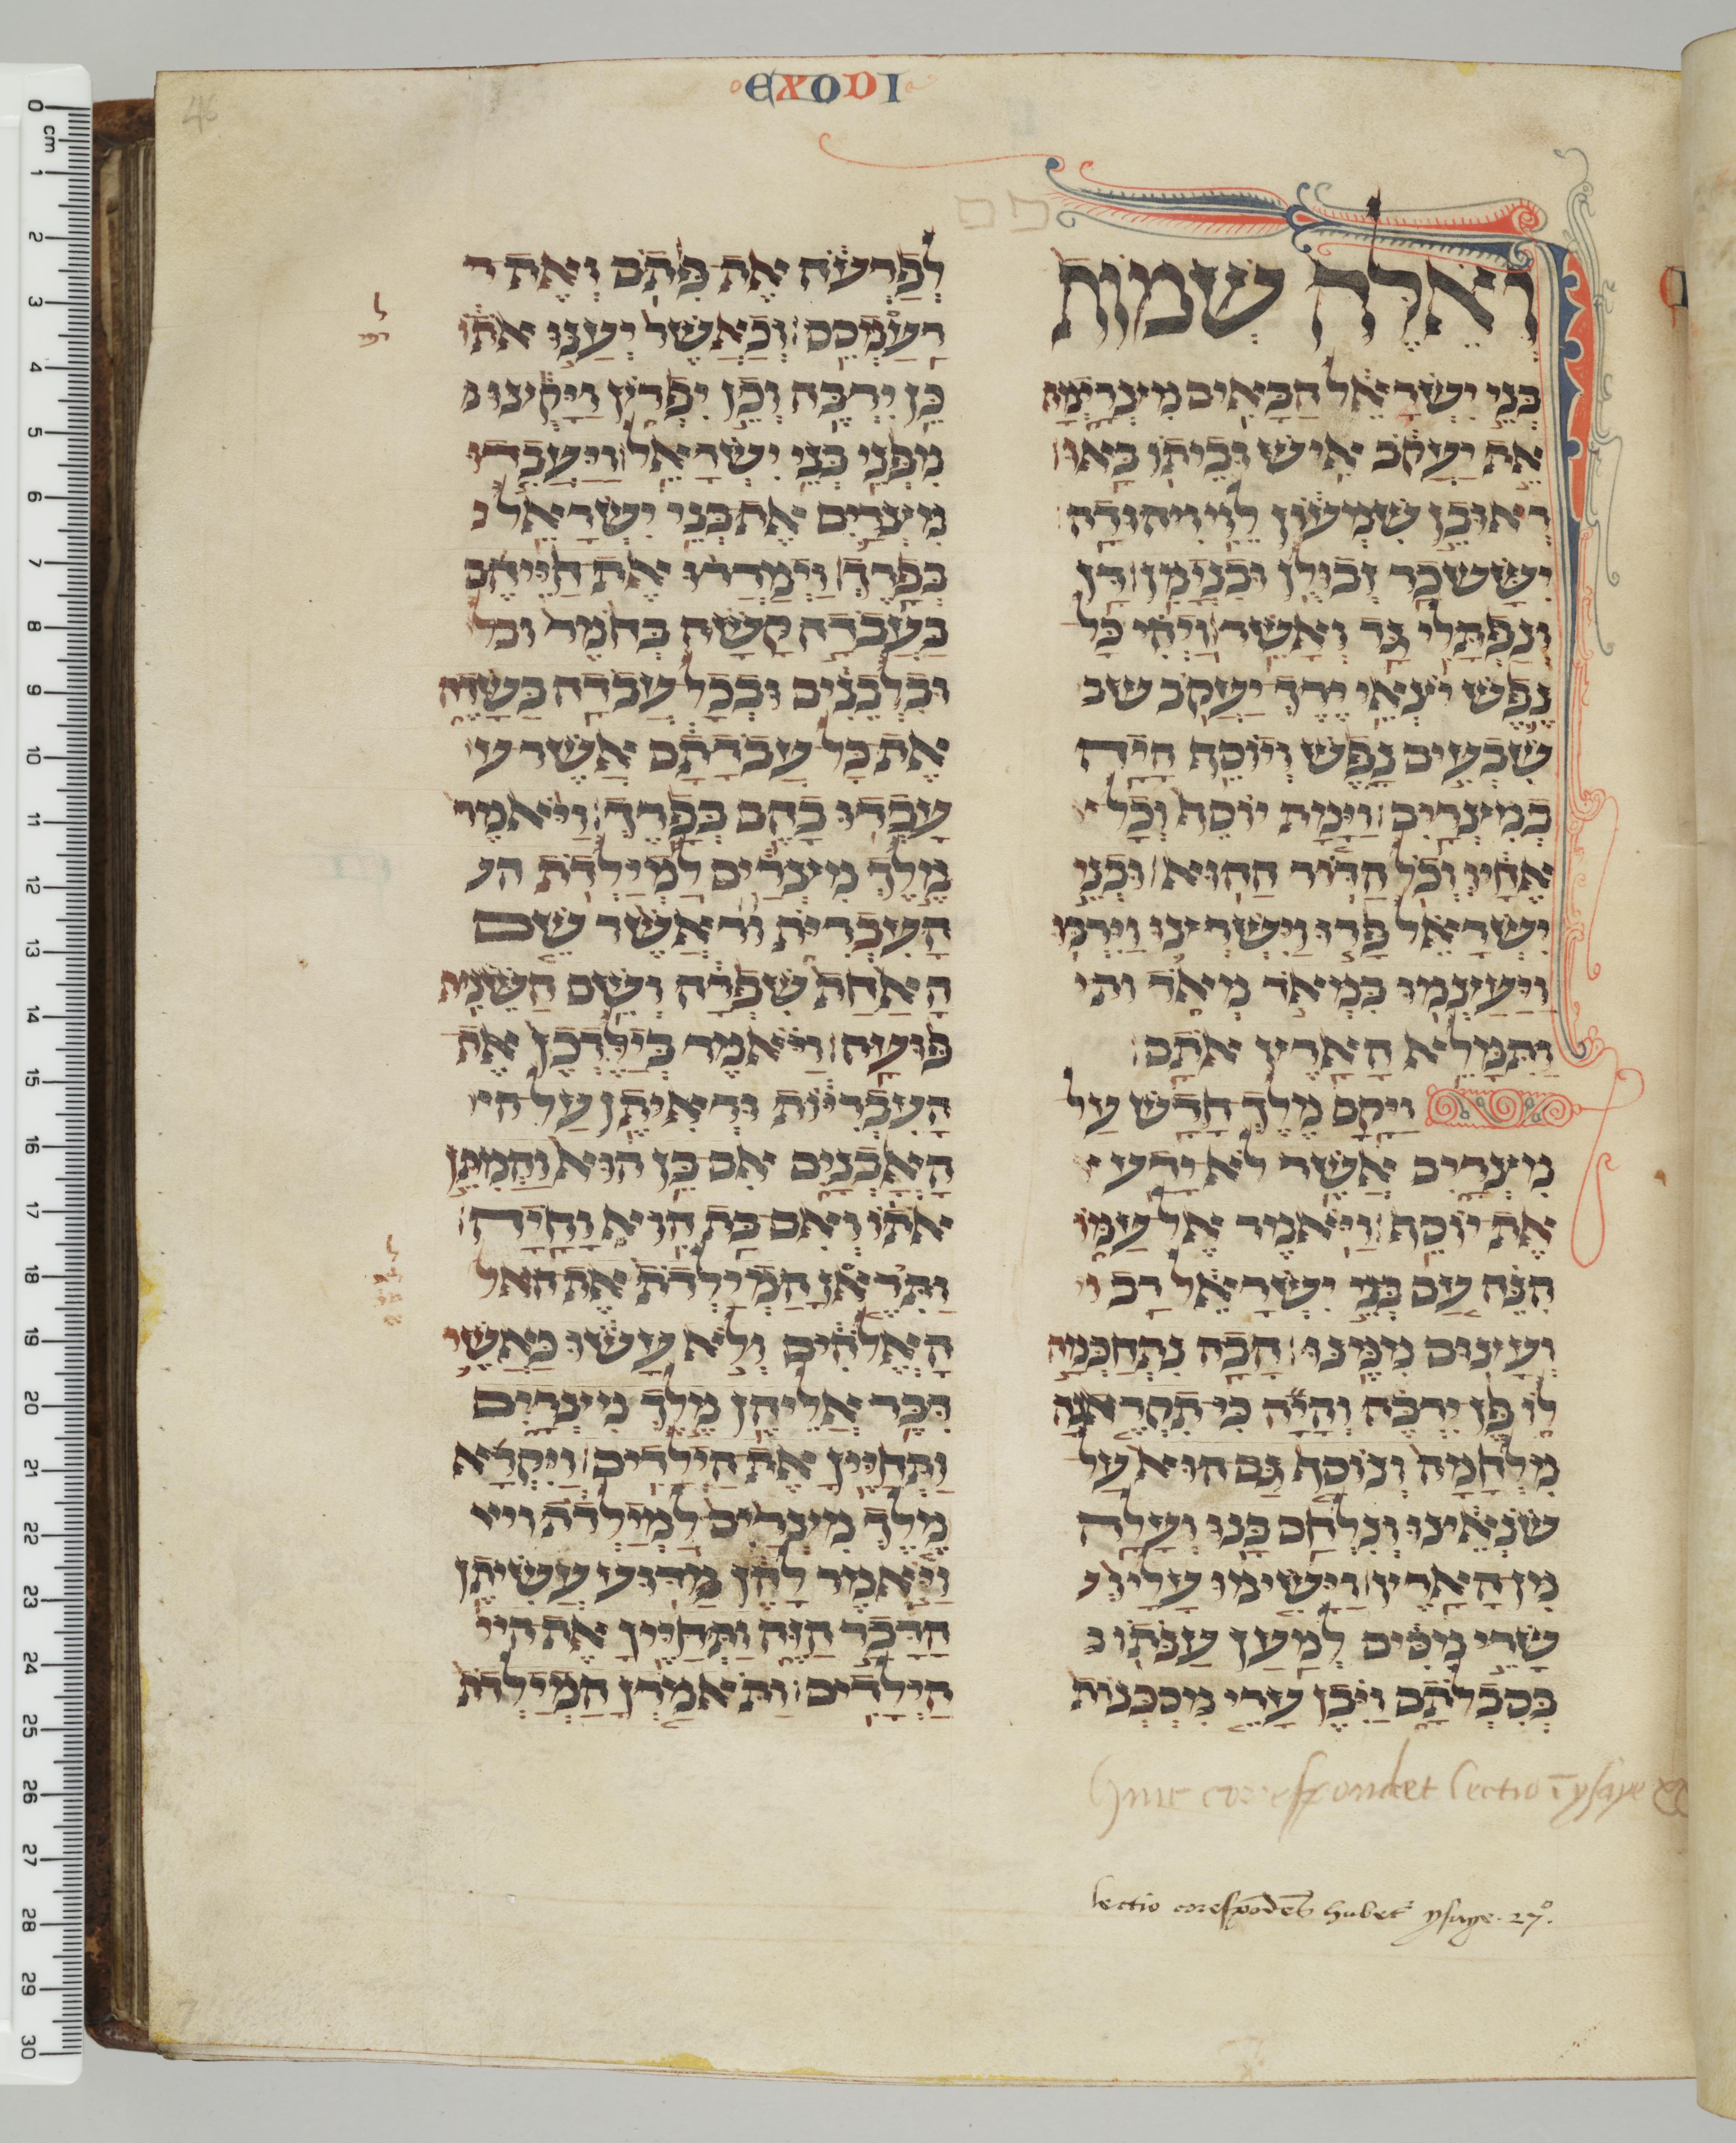 EXODI
46
ואלה שמות
בני ישראל הבאים מצרימה
את יעקב איש וביתו באו
ראובן שמעון לוי ויהודה
יששכר זבולן ובנימן דן
ונפתלי גד ואשר ויהי כל
נפש יצאי ירך יעקב שב
שבעים נפש ויוסף היה
במצרים וימת יוסף וכל
אחיו וכל הדור ההוא ובני
ישראל פרו וישרצו וירבו
ויעצמו במאד מאד ותי
ותמלא הארץ אתם
ויקם מלך חדש על
מצרים אשר לא ידע
את יוסף ויאמר אל עמו
הנה עם בני ישראל רב
ועצום ממנו הבה נתחכמה
לו פן ירבה והיה כי תקראנה
מלחמה ונוסף גם הוא על
שנאינו ונלחם בנו ועלה
מן הארץ וישימו עליו
שרי מסים למען ענתו ב
בסבלתם ויבן ערי מסכנות
לפרעה את פתם ואת ר
רעמסס וכאשר יענו אתו
כן ירבה וכן יפרץ ויקצו
מפני בני ישראל ויעבדו
מצרים את בני ישראל
בפרך וימררו את חייהם
בעבדה קשה בחמר ובל
ובלבנים ובכל עבדה בשדה
את כל עבדתם אשר ע
עבדו בהם בפרך ויאמר
מלך מצרים למילדת הע
העברית אשר שם
האחת שפרה ושם השנית
פועה ויאמר בילדכן את
העבריות וראיתן על הי
האבנים אם בן הוא והמתן
אתו ואם בת הוא וחיה
ותיראן המילדת את האל
האלהים ולא עשו כאשר
דבר אליהן מלך מצרים
ותחיין את הילדים ויקרא
מלך מצרים למילדת ויא
ויאמר להן מדוע עשיתן
הדבר הזה ותחיין את היל
הילדים ותאמרן המילדת
huic correspondet lectio ī ysaye
lectio correspōdēs habet^r ysaye. 27°.